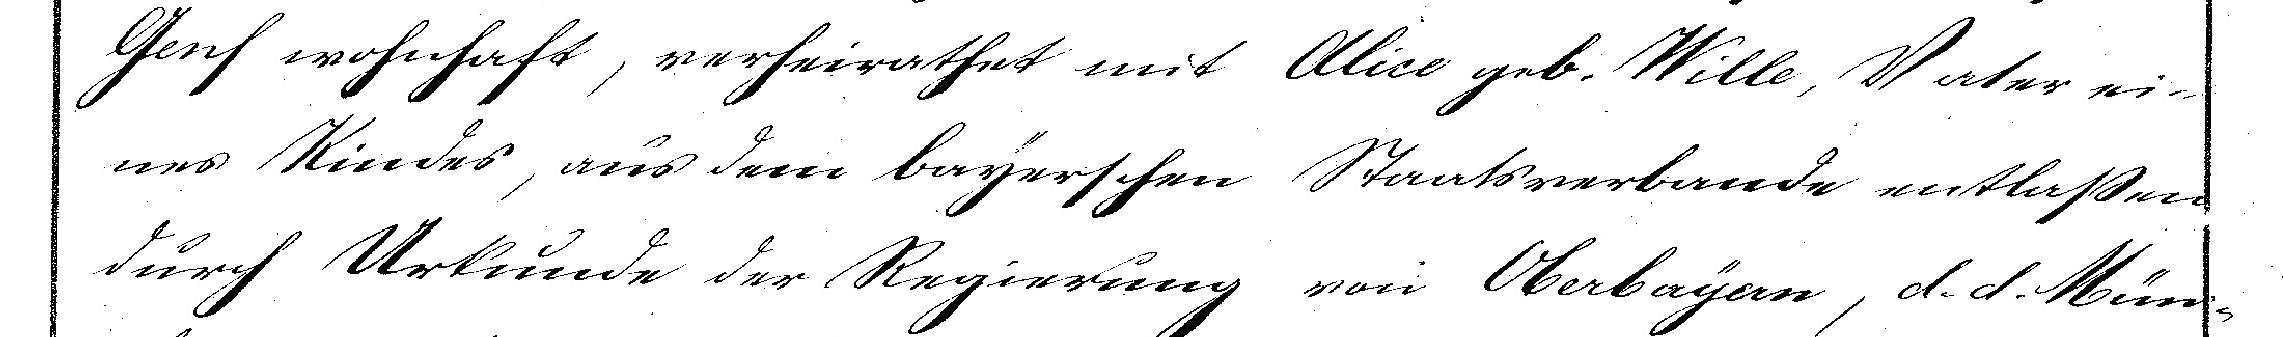 Genf wohnhaft, verheirathet mit Alice geb. Wille, Vater ei-
nes Kindes, aus dem bayerschen Staatsverbande entlaßen
durch Urkunde der Regierung von Oberbayern, d. d. Mün-